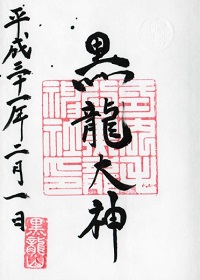 黒龍大神
平成三十一年二月一日
黒龍山